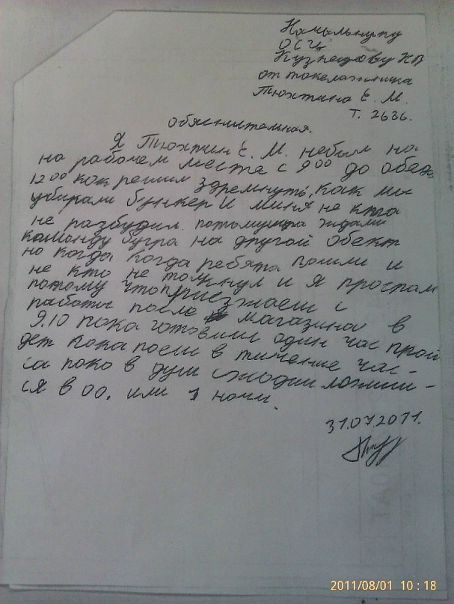 Начальнику
ОСЦ
Кузнецову
от такелажника
Тюхтина Е. М.
Т. 2636.
Обяснительная.
Я Тюхтин Е. М. небыл на
на рабочем места с 9 00 до обеда
12 00 как решил здремнуть, как мы
убирали бункер и миня не кто
не разбудил. потомушта ждали
команду бугра на другой обект
но когда когда ребята пошли и
не кто не толкнул и я проспал
потому что приезжаем с
работы после магазина в
9.10 пока готовиш один час прой
дет пока поеш в тичение час-
са пако в душ сходиш ложиш-
ся в 00. или 1 ночи.
31.07.2011.
2011/08/01 10:18